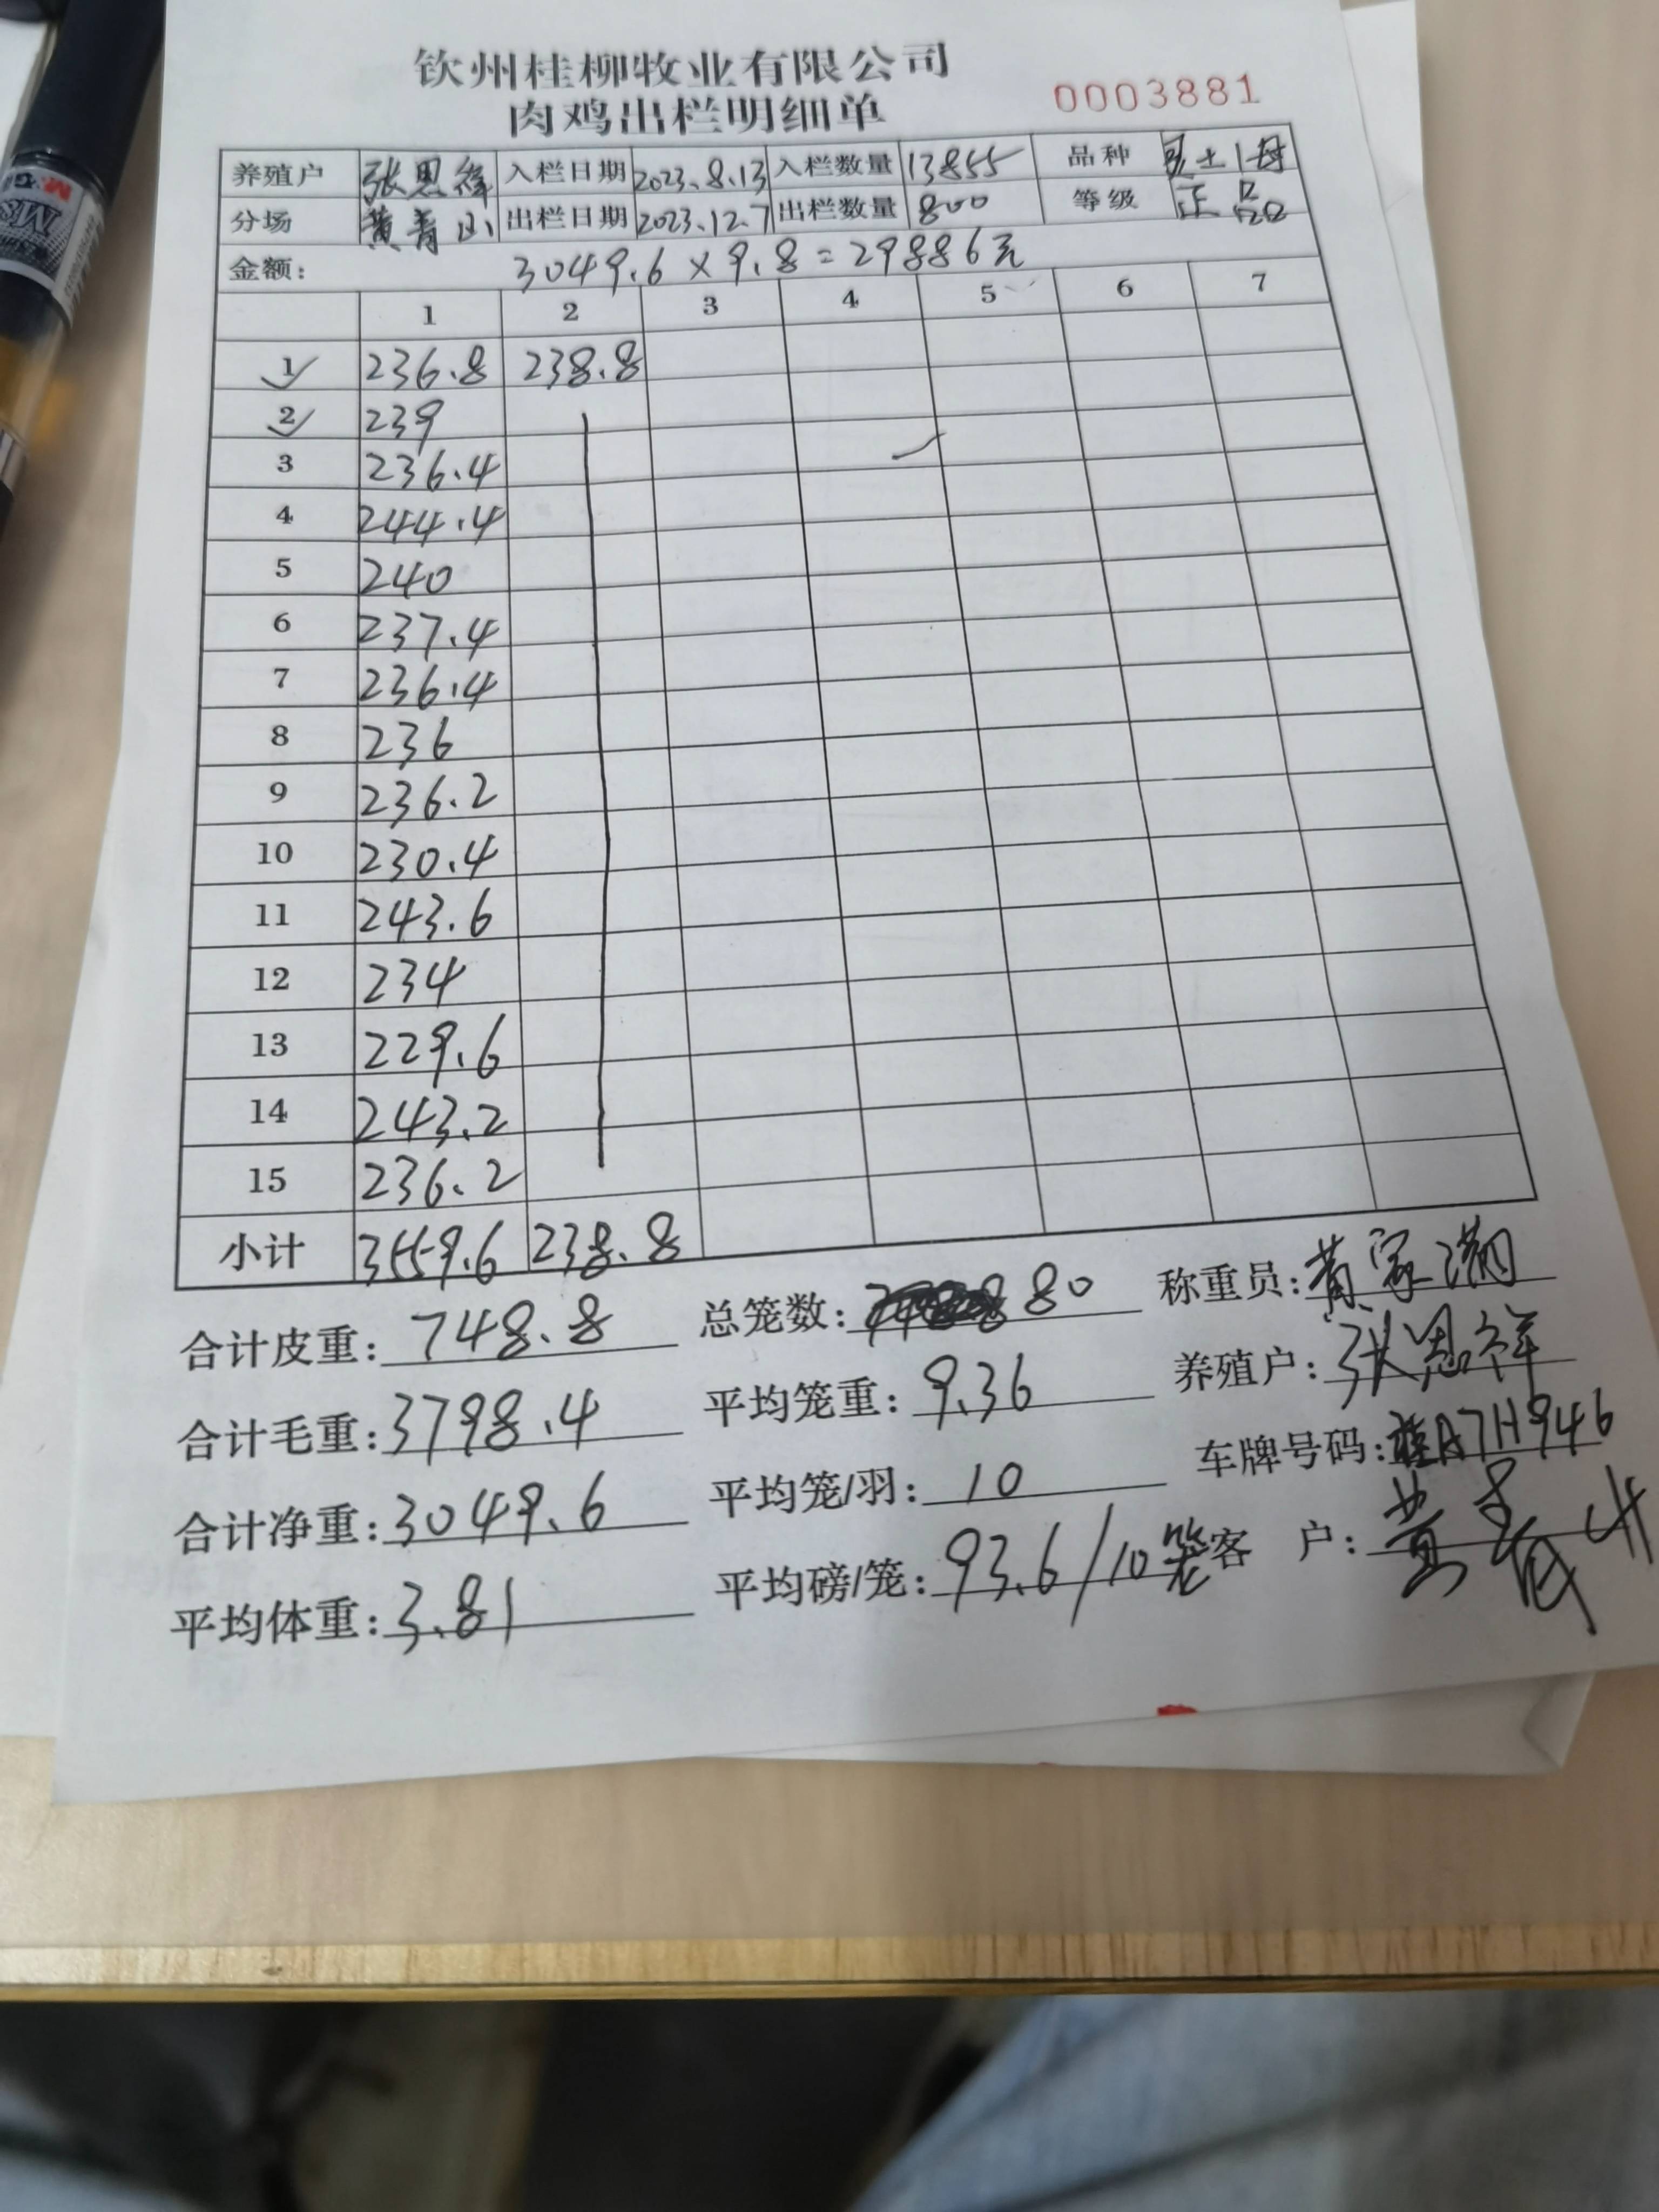 钦州桂柳牧业有限公司
肉鸡出栏明细单 0003881
养殖户 张思祥 入栏日期 2023.8.13 入栏数量 13855 品种 土1母
分场 黄青山 出栏日期 2023.12.7 出栏数量 800 等级 正品
金额: 3049.6×9.8=29886元
1 2 3 4 5 6 7
1 236.8 238.8
2 239
3 236.4
4 244.4
5 240
6 237.4
7 236.4
8 236
9 236.2
10 230.4
11 243.6
12 234
13 229.6
14 243.2
15 236.2
小计 3559.6 238.8
合计皮重: 748.8 总笼数: 80 称重员: 黄家
合计毛重: 3798.4 平均笼重: 9.36 养殖户: 张思祥
合计净重: 3049.6 平均笼/羽: 10 车牌号码: 桂A7H946
平均体重: 3.81 平均磅/笼: 93.6/10笼 客 户: 黄青山